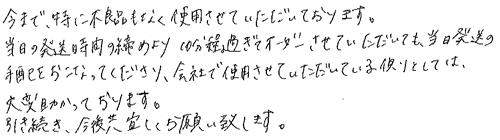 今まで、特に不良品もなく使用させていただいております。
当日の発送時間の締めより10分程過ぎてオーダーさせていただいても、当日発送の
手配をおこなってくださり、会社で使用させていただいている側としては、
大変助かっております。
引き続き、今後共宜しくお願い致します。